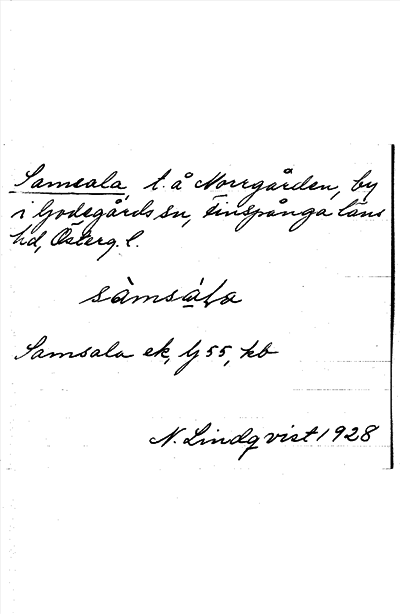 Samsala, t. å Norrgården, by
i Godegårds sn, Finspånga läns
hd, Österg. l.
sàmsá̱la
Samsala ek, bj 55, kb
N. Lindqvist 1928